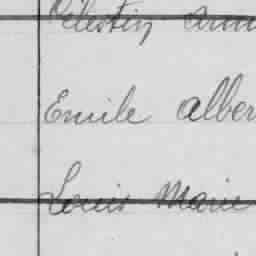 Célestin Arm
Emile Alber
Louis Marie